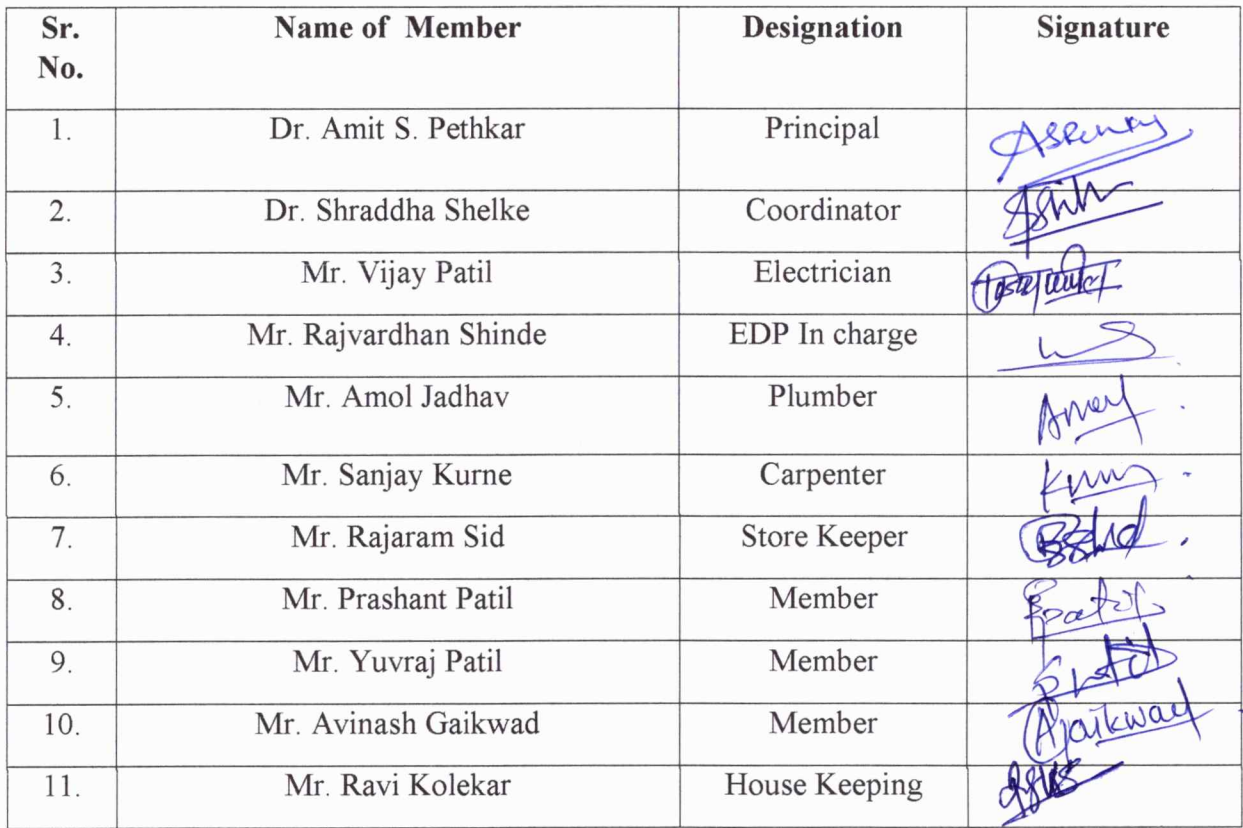 Sr. No. Name of Member Designation Signature
1. Dr. Amit S. Pethkar Principal
2. Dr. Shraddha Shelke Coordinator
3. Mr. Vijay Patil Electrician
4. Mr. Rajvardhan Shinde EDP In charge
5. Mr. Amol Jadhav Plumber
6. Mr. Sanjay Kurne Carpenter
7. Mr. Rajaram Sid Store Keeper
8. Mr. Prashant Patil Member
9. Mr. Yuvraj Patil Member
10. Mr. Avinash Gaikwad Member
11. Mr. Ravi Kolekar House Keeping